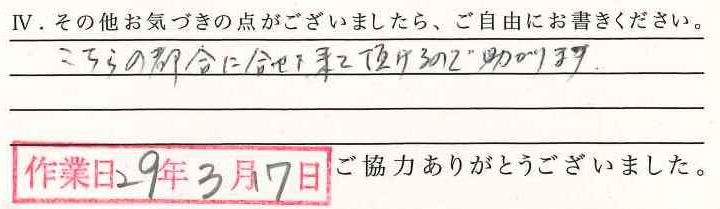 Ⅳ. その他お気づきの点がございましたら、ご自由にお書きください。
こちらの都合に合せて来て頂けるので助かります.
作業日29年3月17日
ご協力ありがとうございました。